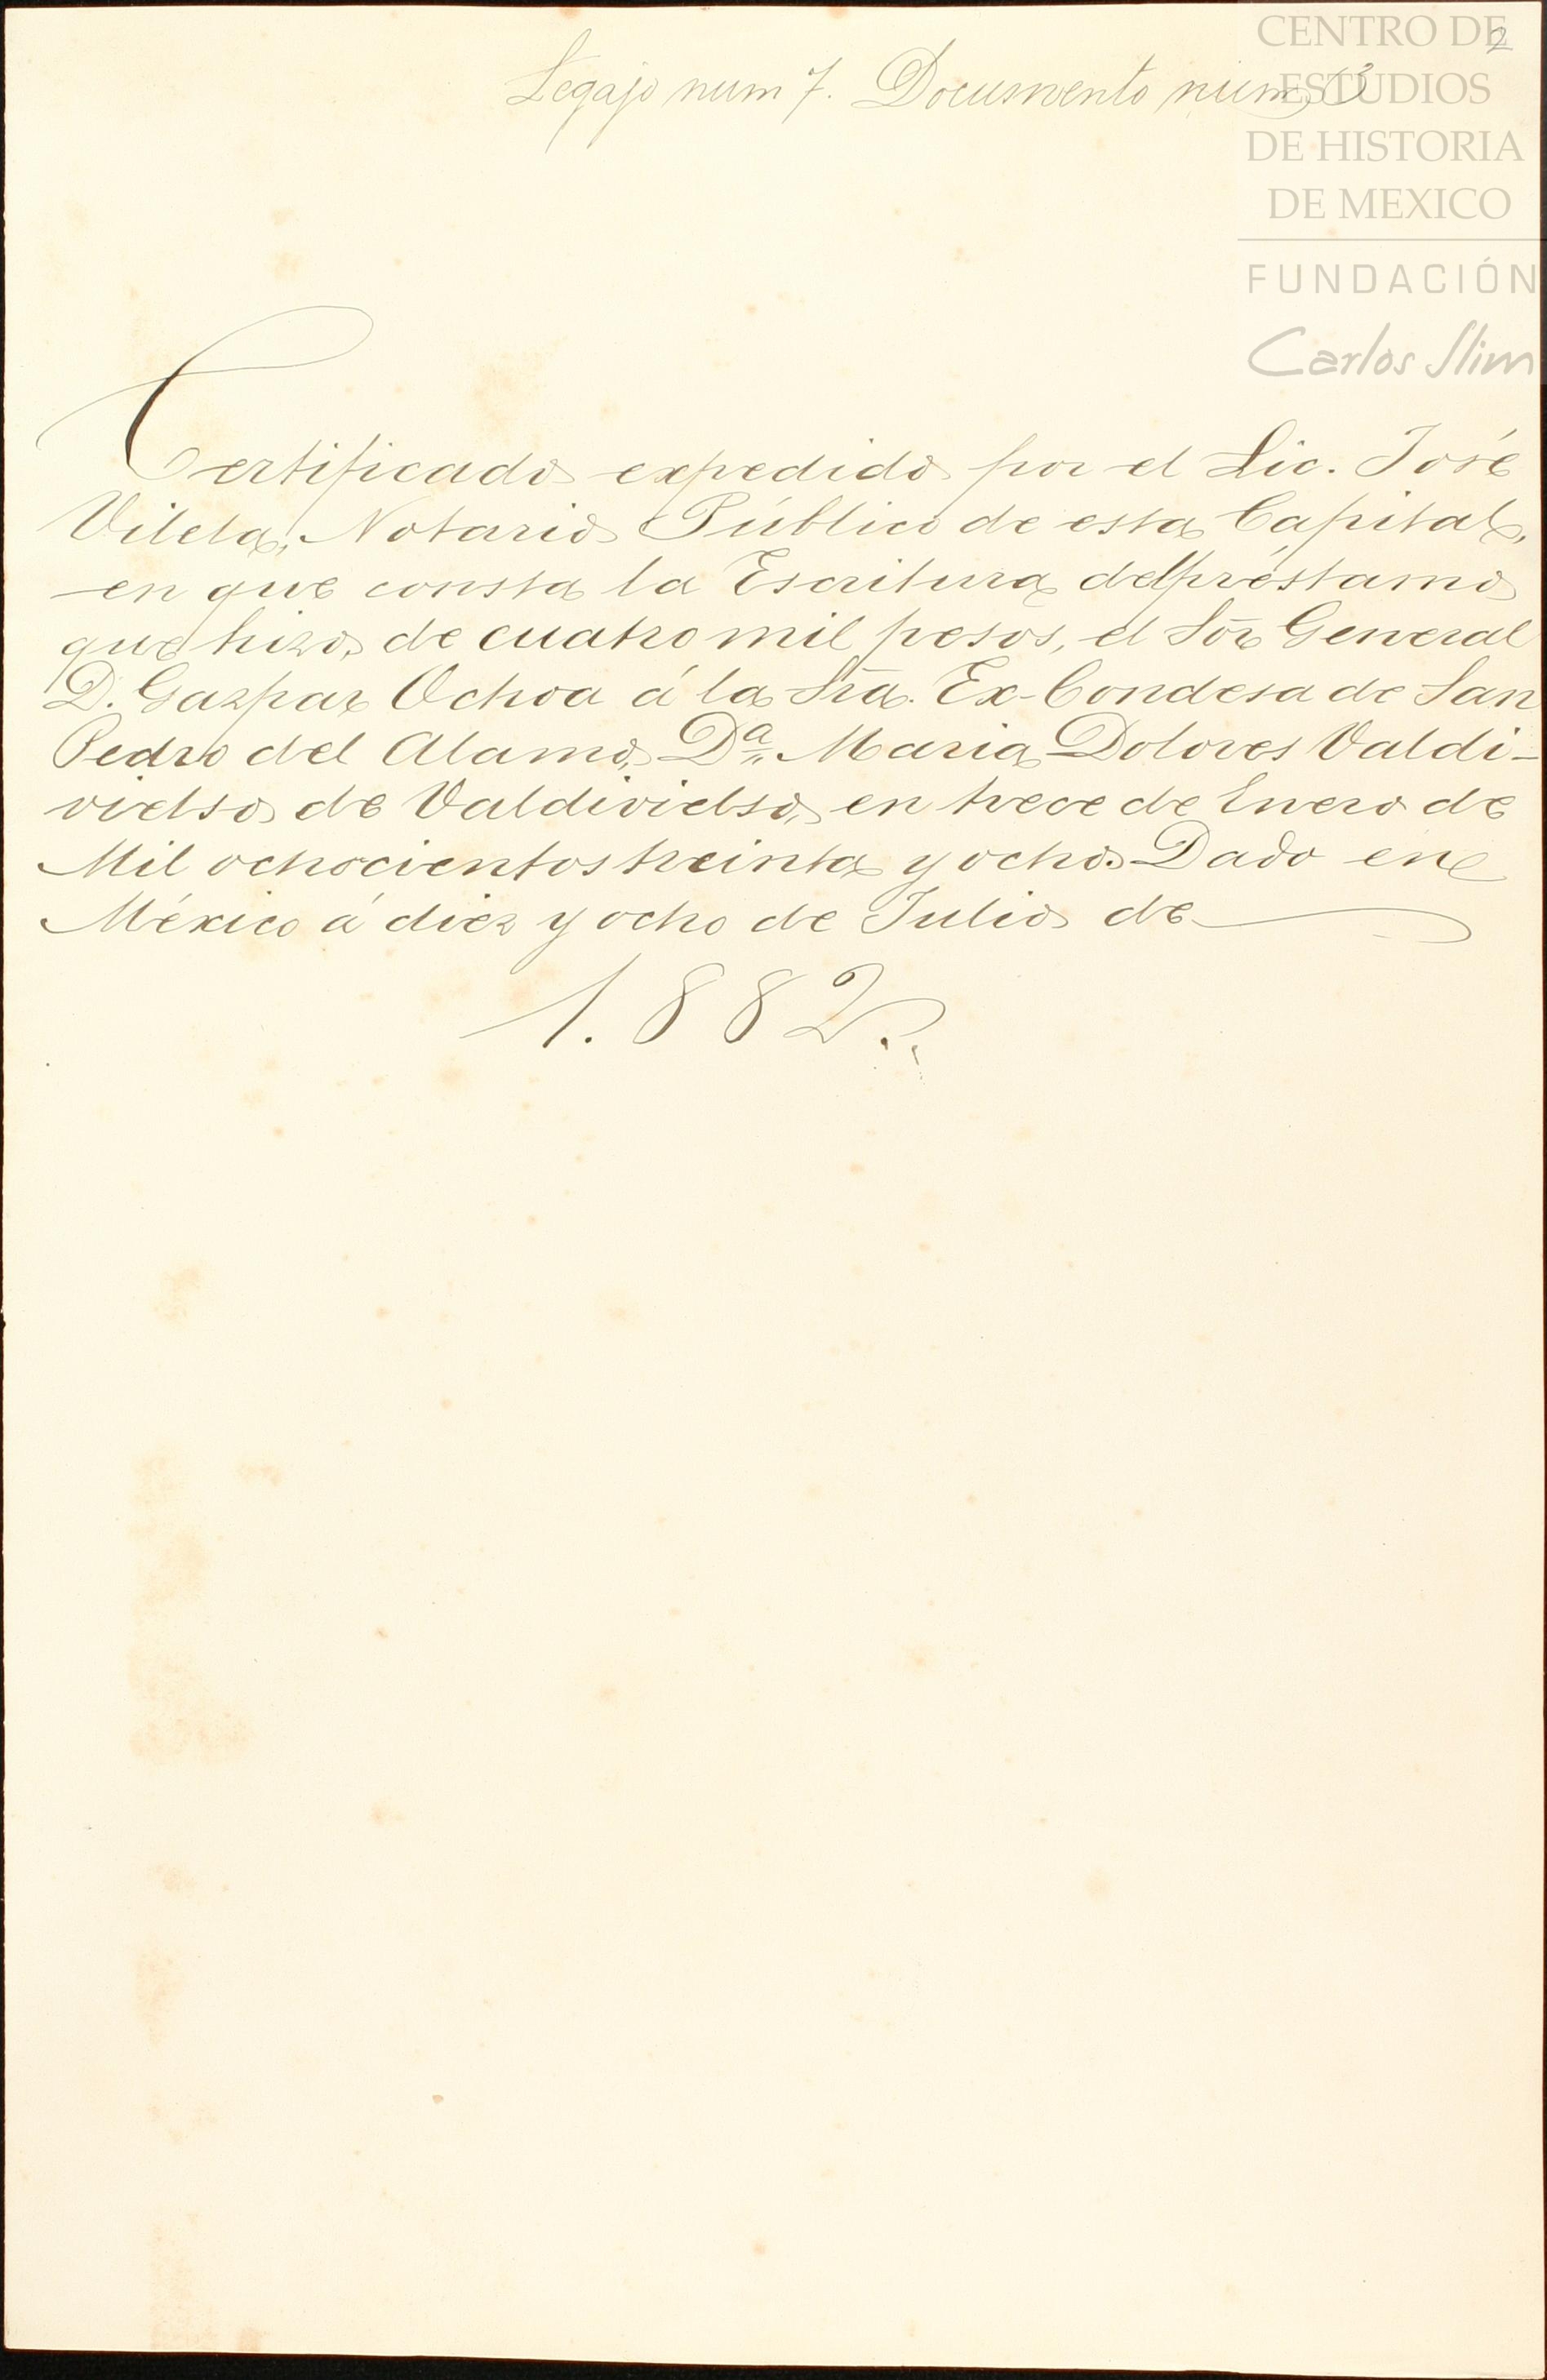 2
Legajo num 7. Documento num
CENTRO DE
ESTUDIOS
DE HISTORIA
DE MEXICO
FUNDACIÓN
Carlos Slim
Certificado expedido por el Lic. José
Vilela, Notario Público de esta Capital,
en que consta la Escritura del préstamo
que hizo, de cuatro mil pesos, el Sõr General
D. Gaspar Ochoa á la Sra. Ex-Condesa de San
Pedro del Alamo, Dª. Maria Dolores Valdi-
vielso de Valdivielso, en trece de Enero de
Mil ochocientos treinta y ocho. Dado en
México á diez y ocho de Julio de
1.882.